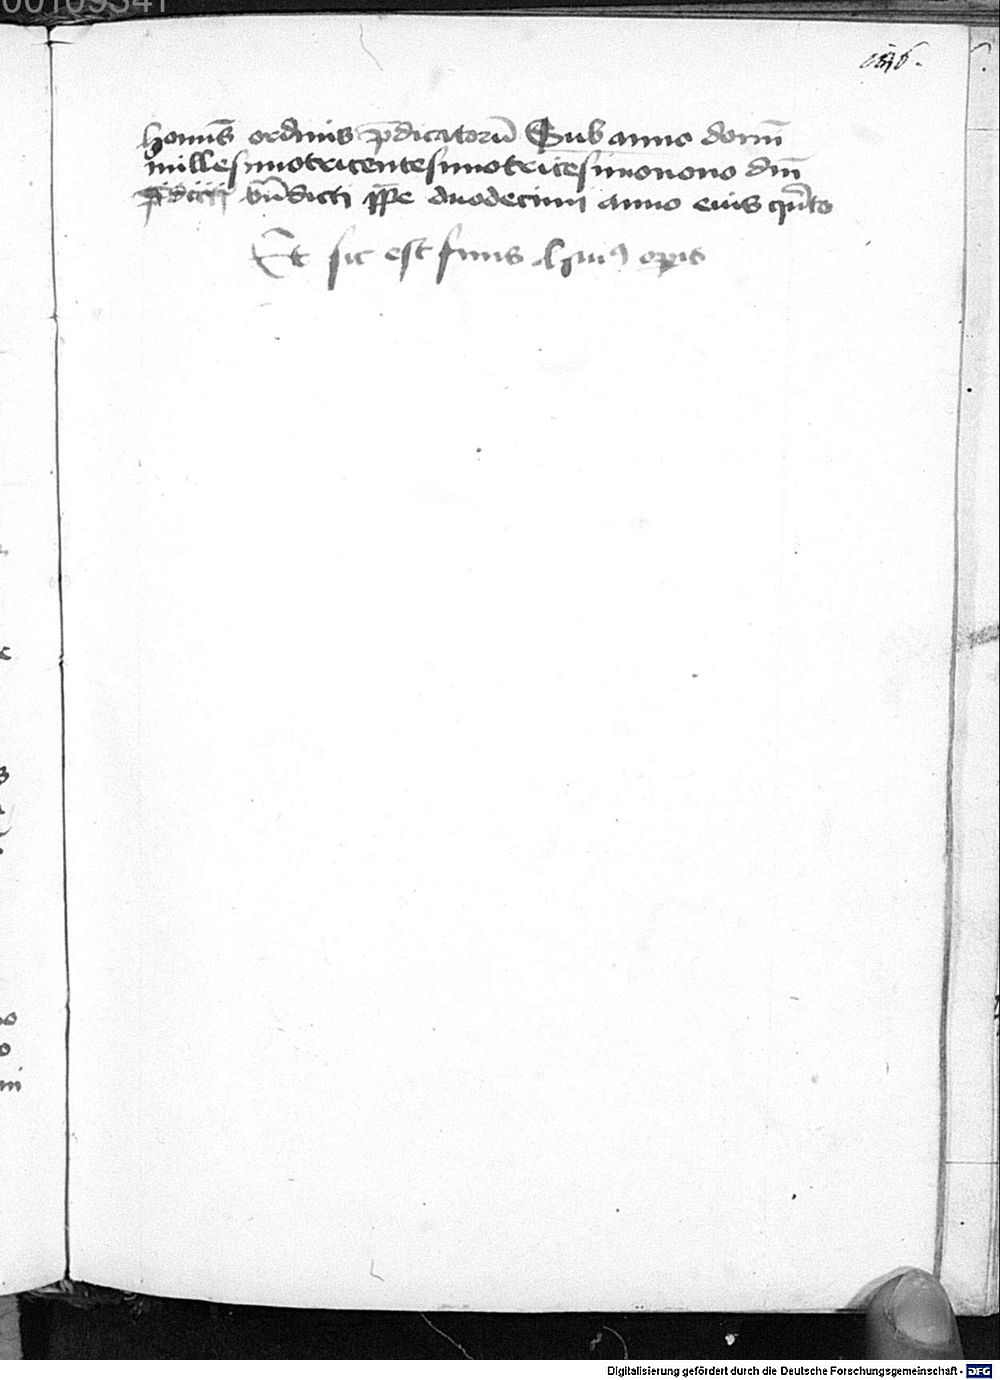 00109341
homīs ordinis p̄dicatorū Sub anno domī
millesimotricentesimotricesimonono dnī
p̄dicti bn̄dicti pp̄e duodecimi anno eius qn̄to
Et sic est finis huiꝰ opis
Digitalisierung gefördert durch die Deutsche Forschungsgemeinschaft - DFG